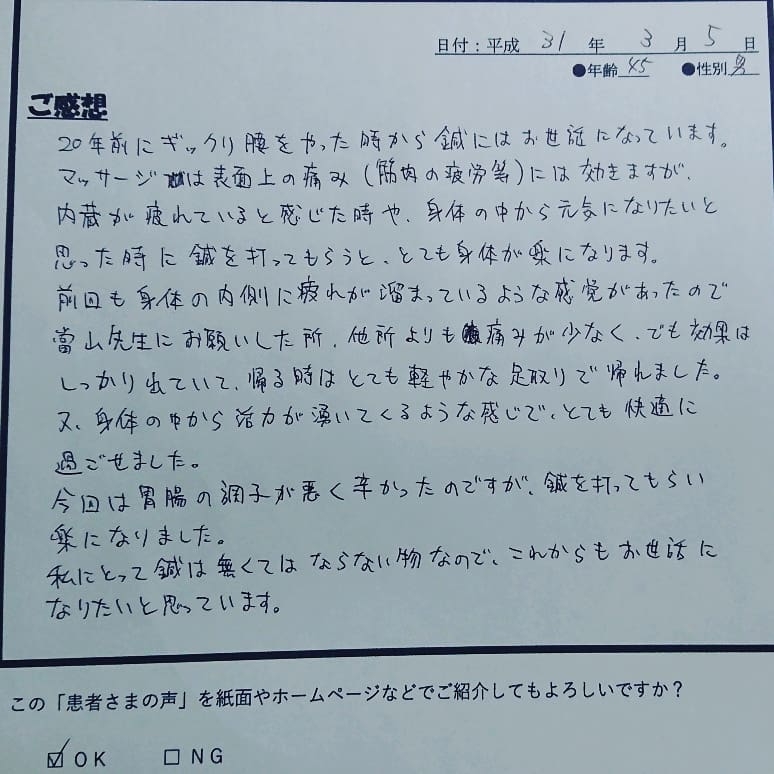 日付：平成 31 年 3 月 5 日
●年齢 45 ●性別 男
ご感想
20年前にギックリ腰をやった時から鍼にはお世話になっています。
マッサージは表面上の痛み（筋肉の疲労等）には効きますが、
内蔵が疲れていると感じた時や、身体の中から元気になりたいと
思った時に鍼を打ってもらうと、とても身体が楽になります。
前回も身体の内側に疲れが溜まっているような感覚があったので
當山先生にお願いした所、他所よりも痛みが少なく、でも効果は
しっかり出ていて、帰る時はとても軽やかな足取りで帰れました。
又、身体の中から活力が湧いてくるような感じで、とても快適に
過ごせました。
今回は胃腸の調子が悪く辛かったのですが、鍼を打ってもらい
楽になりました。
私にとって鍼は無くてはならない物なので、これからもお世話に
なりたいと思っています。
この「患者さまの声」を紙面やホームページなどでご紹介してもよろしいですか？
☑ OK □ NG